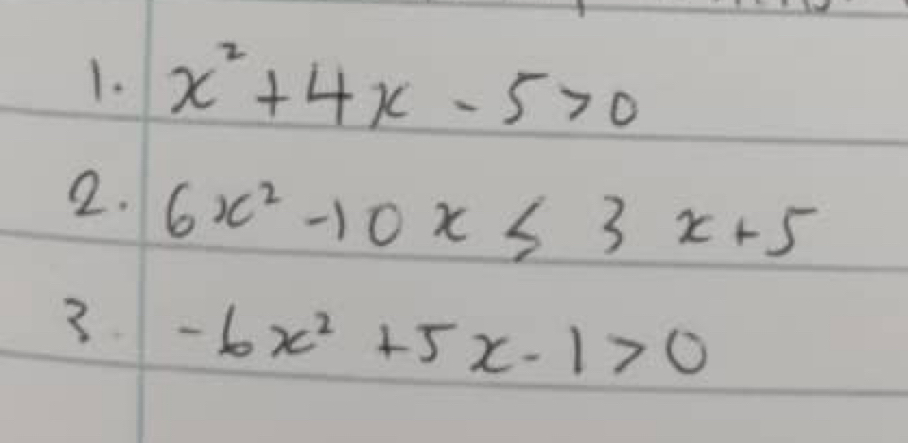 1. x² + 4x - 5 > 0
2. 6x² - 10x ≤ 3x + 5
3. -6x² + 5x - 1 > 0